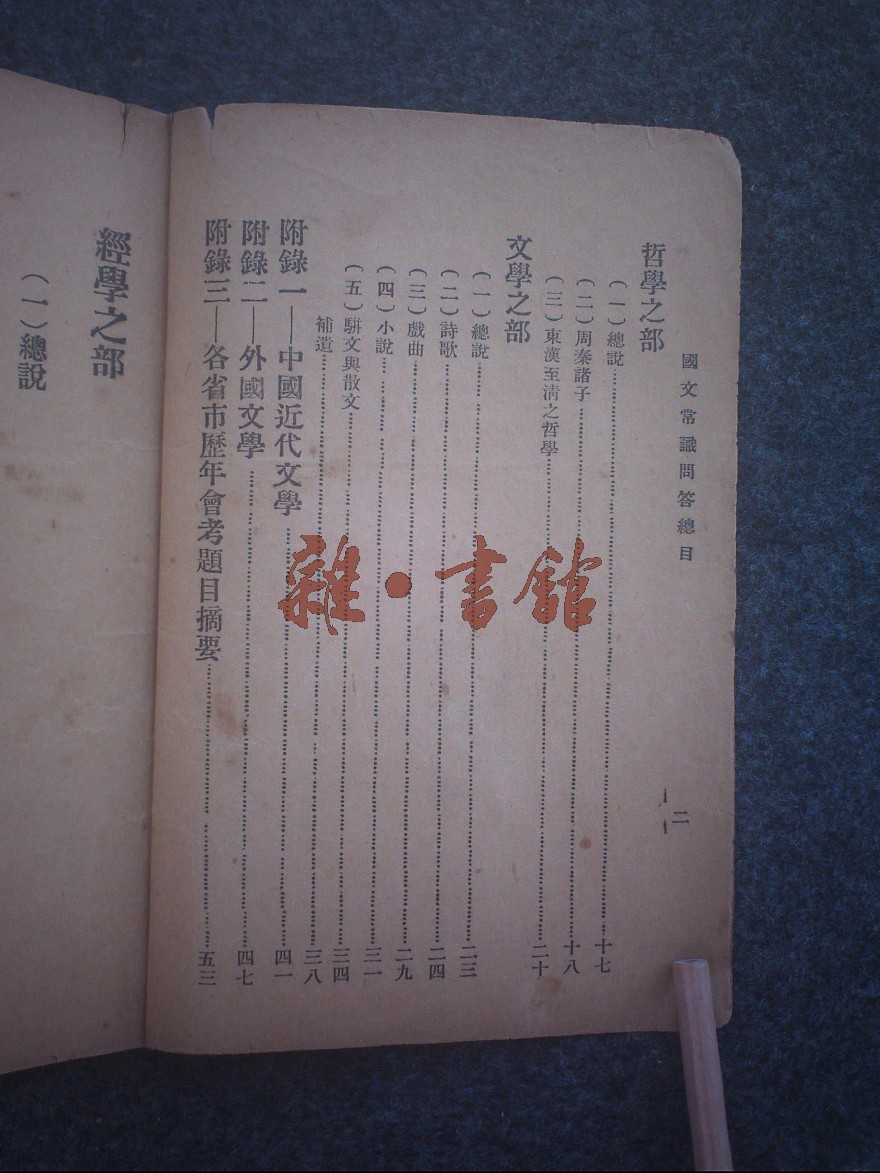 國文常識問答總目
二
哲學之部
（一）總說……十七
（二）周秦諸子……十八
（三）東漢至淸之哲學……二十
文學之部
（一）總說……二三
（二）詩歌……二四
（三）戲曲……二九
（四）小說……三一
（五）駢文與散文……三四
補遺……三八
附錄一——中國近代文學……四一
附錄二——外國文學……四七
附錄三——各省市歷年會考題目摘要……五三
經學之部
（一）總說
雜·書館